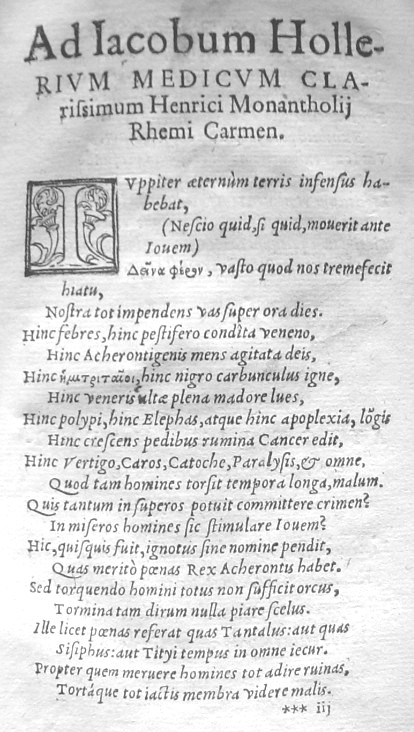 Ad Iacobum Holle-
RIVM MEDICVM CLA-
rissimum Henrici Monantholij
Rhemi Carmen.
IVppiter æternùm terris infensus ha-
bebat,
(Nescio quid, si quid, mouerit ante
Iouem)
Δεῖνα φέρον, vasto quod nos tremefecit
hiatu,
Nostra tot impendens vas super ora dies.
Hinc febres, hinc pestifero condita veneno,
Hinc Acherontigenis mens agitata deis,
Hinc ἡμιτριταῖοι, hinc nigro carbunculus igne,
Hinc veneris vltæ plena madore lues,
Hinc polypi, hinc Elephas, atque hinc apoplexia, lõgis
Hinc crescens pedibus rumina Cancer edit,
Hinc Vertigo, Caros, Catoche, Paralysis, & omne,
Quod tam homines torsit tempora longa, malum.
Quis tantum in superos potuit committere crimen?
In miseros homines sic stimulare Iouem?
Hic, quisquis fuit, ignotus sine nomine pendit,
Quas meritò pœnas Rex Acherontis habet.
Sed torquendo homini totus non sufficit orcus,
Tormina tam dirum nulla piare scelus.
Ille licet pœnas referat quas Tantalus: aut quas
Sisiphus: aut Tityi tempus in omne iecur.
Propter quem meruere homines tot adire ruinas,
Tortáque tot iactis membra videre malis.
*** iij